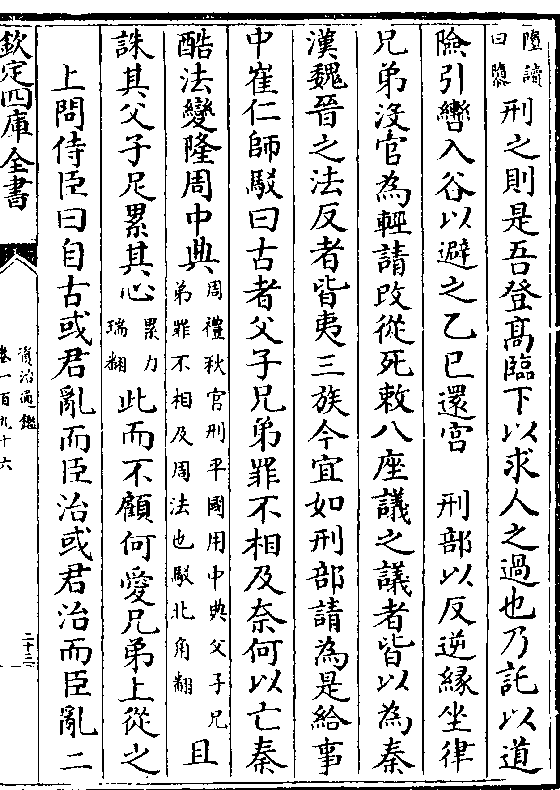 墮讀曰隳刑之則是吾登髙臨下以求人之過也乃託以道
險引轡入谷以避之乙巳還宫　刑部以反逆縁坐律
兄弟没官為輕請改從死敕八座議之議者皆以為秦
漢魏晉之法反者皆夷三族今宜如刑部請為是給事
中崔仁師駁曰古者父子兄弟罪不相及奈何以亡秦
酷法變隆周中典周禮秋官刑平國用中典父子兄弟罪不相及周法也駁北角翻且
誅其父子足累其心累力瑞翻此而不顧何愛兄弟上從之
上問侍臣曰自古或君亂而臣治或君治而臣亂二
欽定四庫全書
資治通鑑
卷一百九十六
二十三